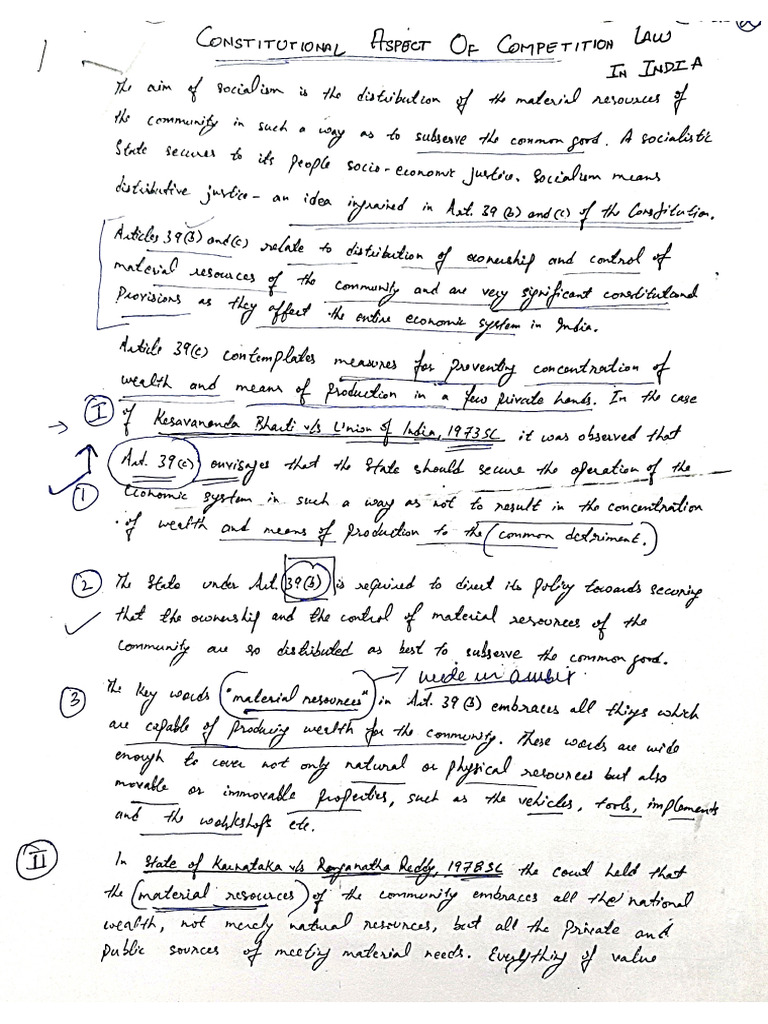 CONSTITUTIONAL ASPECT OF COMPETITION LAW
IN INDIA
The aim of socialism is the distribution of the material resources of
the community in such a way as to subserve the common good. A socialistic
State secures to its people socio-economic justice. Socialism means
distributive justice - an idea ingrained in Art. 39 (b) and (c) of the Constitution.
Articles 39(b) and (c) relate to distribution of ownership and control of
material resources of the community and are very significant constitutional
Provisions as they affect the entire economic system in India.
Article 39(c) contemplates measures for preventing concentration of
wealth and means of production in a few private hands. In the case
I of Kesavananda Bharti v/s Union of India, 1973 SC it was observed that
Art. 39(c) envisages that the State should secure the operation of the
1 Economic system in such a way as not to result in the concentration
of wealth and means of production to the (common detriment.)
2 The State under Art. 39(b) is required to direct its policy towards securing
that the ownership and the control of material resources of the
community are so distributed as best to subserve the common good.
wide in ambit
3 The key words ("material resources") in Art. 39 (b) embraces all things which
are capable of producing wealth for the community. These words are wide
enough to cover not only natural or physical resources but also
movable or immovable properties, such as the vehicles, tools, implements
and the workshops etc.
II In State of Karnataka v/s Ranganatha Reddy, 1978 SC the court held that
the (material resources) of the community embraces all the national
wealth, not merely natural resources, but all the private and
public sources of meeting material needs. Everything of value